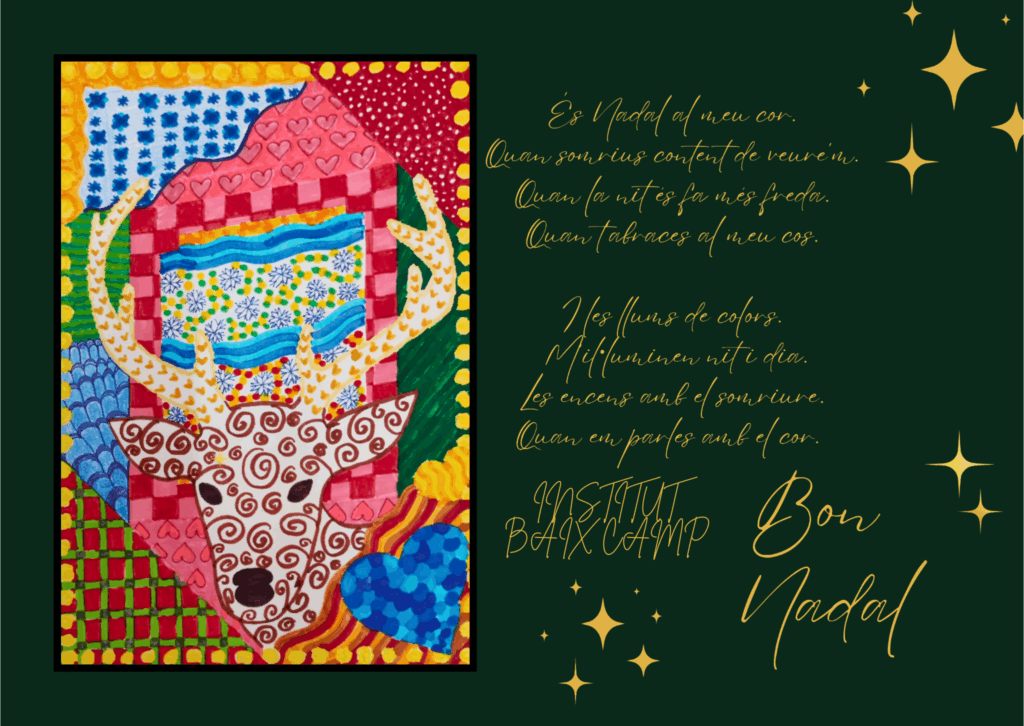 És Nadal al meu cor.
Quan somrius content de veure'm.
Quan la nit és fa més freda.
Quan t'abraces al meu cos.
I les llums de colors.
M'il·luminen nit i dia.
Les encens amb el somriure.
Quan em parles amb el cor.
INSTITUT
BAIX CAMP
Bon
Nadal